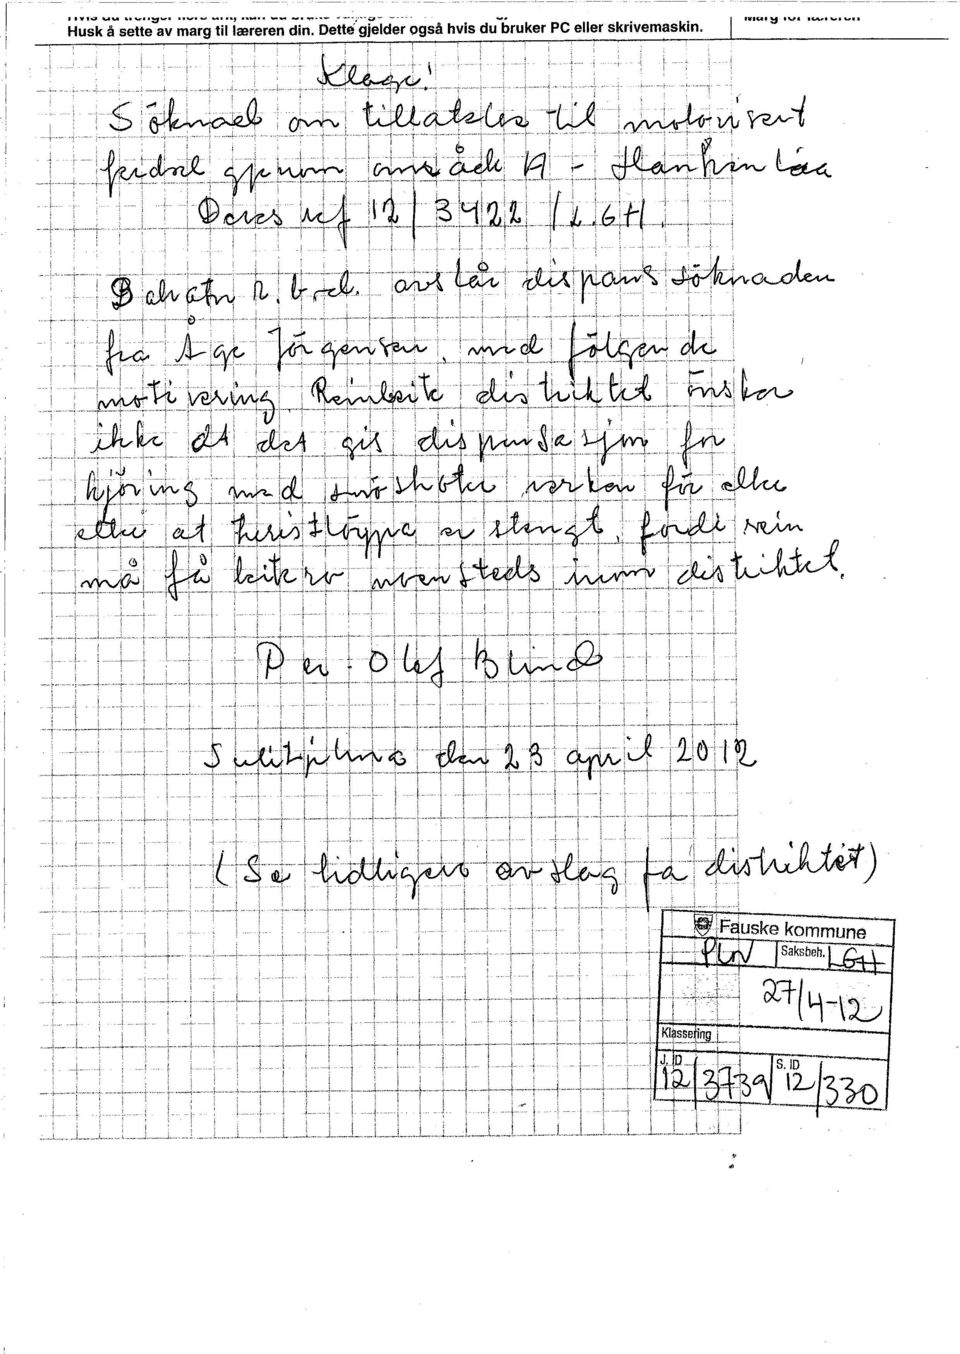 Husk å sette av marg til læreren din. Dette gjelder også hvis du bruker PC eller skrivemaskin.
Klage!
Söknad om tillatelse til motorisert
ferdsel gjenom område A -
Deres ref 12/3422 /L.GH.
Balvatn r.b.d. avslår dispans söknaden
fra Åge Jörgensen, med fölgende
motivering. Reinbeite distriktet önsker
ikke at det gis dispensasjon for
kjöring med snöskoter verken för eller
etter at turistlöyppa er stengt, fordi rein
må få beitero noensteds innom distriktet.
Per-Olof Blind
Sulitjelma den 23 april 2012
(Se tidligere avslag fa distriktet)
Fauske kommune
PLN Saksbeh. LGH
27/4-12
Klassering
J. ID S. ID
12/3739 12/330